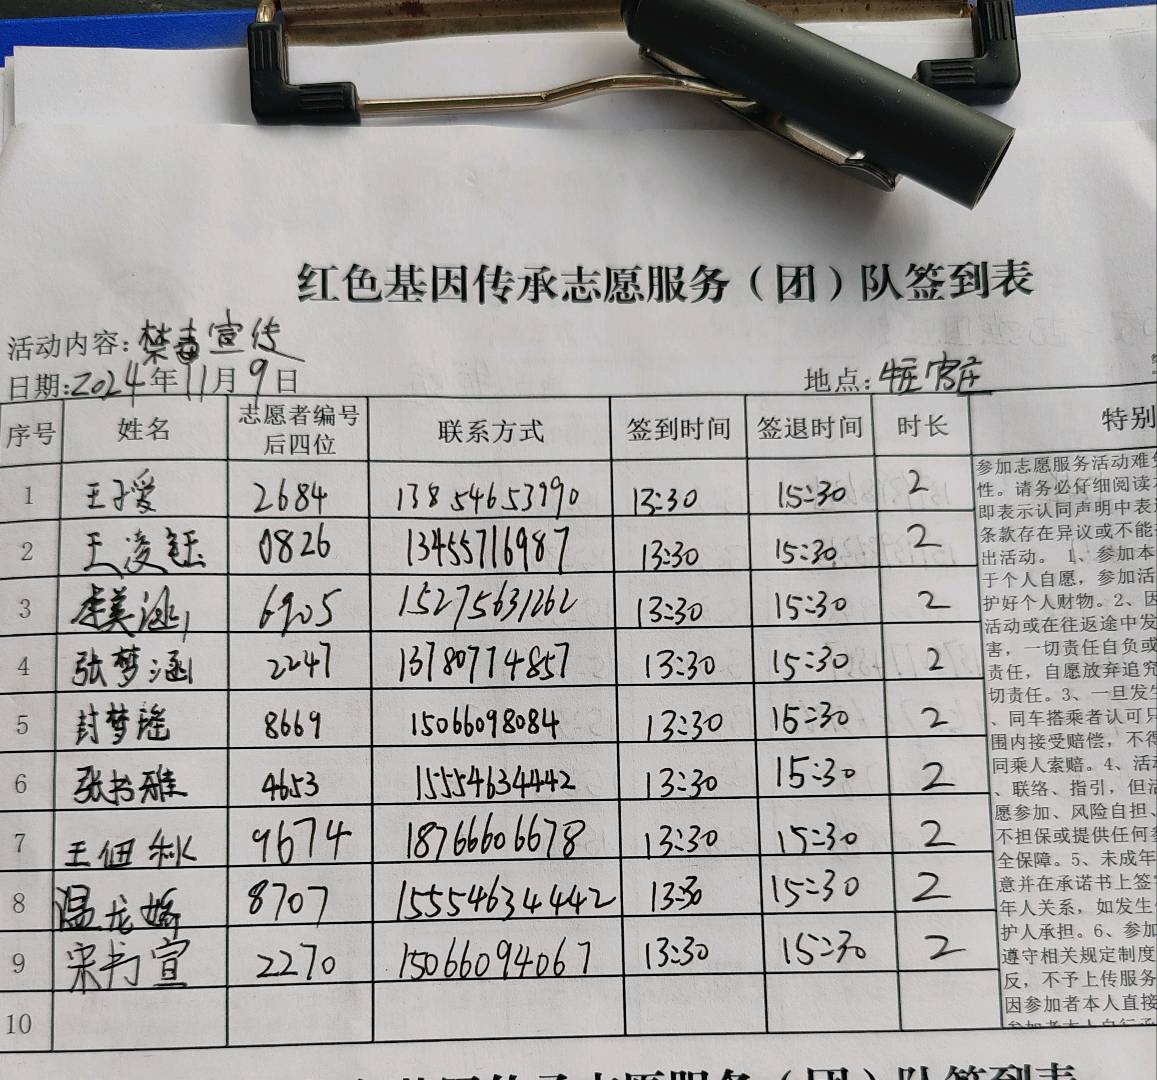 红色基因传承志愿服务（团）队签到表
活动内容：禁毒宣传
日期：2024年11月9日 地点：官庄
序号 姓名 志愿者编号后四位 联系方式 签到时间 签退时间 时长 特别
1 王子爱 2684 13854653990 13:30 15:30 2
2 王凌钰 0826 13455716987 13:30 15:30 2
3 美涵 6905 15275631262 13:30 15:30 2
4 张梦涵 2247 13780774857 13:30 15:30 2
5 封梦瑶 8669 15066098084 13:30 15:30 2
6 张书雅 4653 15554634442 13:30 15:30 2
7 王佃秋 9674 18766606678 13:30 15:30 2
8 温龙娇 8707 15554634442 13:30 15:30 2
9 宋书宣 2270 15066094067 13:30 15:30 2
10
参加志愿服务活动难免
性。请务必仔细阅读本
即表示认同声明中表述
条款存在异议或不能
出活动。 1、参加本
于个人自愿，参加活
护好个人财物。2、因
活动或在往返途中发
害，一切责任自负或
责任，自愿放弃追究
切责任。3、一旦发生
、同车搭乘者认可只
围内接受赔偿，不得
同乘人索赔。4、活动
、联络、指引，但活
愿参加、风险自担、
不担保或提供任何
全保障。5、未成年
意并在承诺书上签字
年人关系，如发生
护人承担。6、参加
遵守相关规定制度
反，不予上传服务
因参加者本人直接
参加者本人自行承
红色基因传承志愿服务（团）队签到表